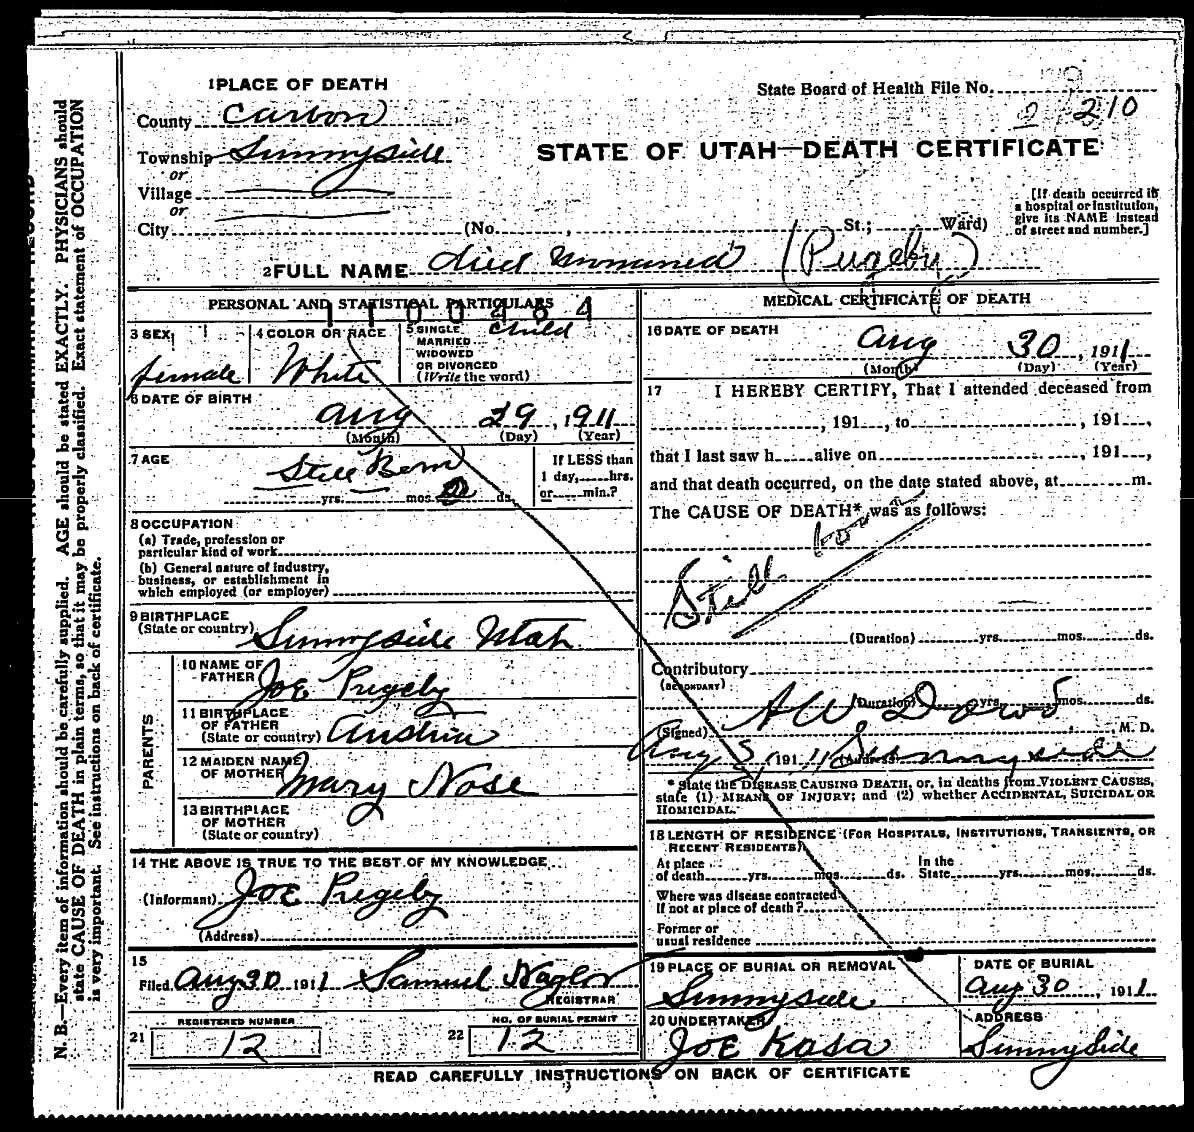 1 PLACE OF DEATH
State Board of Health File No.
County Carbon
2 210
Township Sunnyside
STATE OF UTAH—DEATH CERTIFICATE
or
Village
or
City (No. , St.; Ward)
[If death occurred in a hospital or institution, give its NAME instead of street and number.]
2 FULL NAME died Unnamed (Prigeby)
PERSONAL AND STATISTICAL PARTICULARS
1100484
3 SEX
female
4 COLOR OR RACE
White
5 SINGLE
MARRIED
WIDOWED
OR DIVORCED
(Write the word)
child
6 DATE OF BIRTH
Aug 29, 1911
(Month) (Day) (Year)
7 AGE
Still Born
yrs. mos. ds.
If LESS than
1 day, hrs.
or min.?
8 OCCUPATION
(a) Trade, profession or
particular kind of work
(b) General nature of industry,
business, or establishment in
which employed (or employer)
9 BIRTHPLACE
(State or country) Sunnyside Utah
PARENTS
10 NAME OF
FATHER Joe Prigeby
11 BIRTHPLACE
OF FATHER
(State or country) Austria
12 MAIDEN NAME
OF MOTHER Mary Nose
13 BIRTHPLACE
OF MOTHER
(State or country)
14 THE ABOVE IS TRUE TO THE BEST OF MY KNOWLEDGE
(Informant) Joe Prigeby
(Address)
15
Filed Aug 30 1911 Samuel Naylor
REGISTRAR
21 REGISTERED NUMBER
12
22 NO. OF BURIAL PERMIT
12
MEDICAL CERTIFICATE OF DEATH
16 DATE OF DEATH
Aug 30, 1911
(Month) (Day) (Year)
17 I HEREBY CERTIFY, That I attended deceased from
, 191 , to , 191 ,
that I last saw h alive on , 191 ,
and that death occurred, on the date stated above, at m.
The CAUSE OF DEATH* was as follows:
Still born
(Duration) yrs. mos. ds.
Contributory
(SECONDARY)
(Duration) yrs. mos. ds.
(Signed) A W Dowd, M. D.
Aug 5, 1911 (Address) Sunnyside
* State the DISEASE CAUSING DEATH, or, in deaths from VIOLENT CAUSES,
state (1) MEANS OF INJURY; and (2) whether ACCIDENTAL, SUICIDAL OR
HOMICIDAL.
18 LENGTH OF RESIDENCE (FOR HOSPITALS, INSTITUTIONS, TRANSIENTS, OR
RECENT RESIDENTS)
At place
of death yrs. mos. ds.
In the
State yrs. mos. ds.
Where was disease contracted
If not at place of death?
Former or
usual residence
19 PLACE OF BURIAL OR REMOVAL
Sunnyside
DATE OF BURIAL
Aug 30, 1911
20 UNDERTAKER
Joe Kosa
ADDRESS
Sunnyside
READ CAREFULLY INSTRUCTIONS ON BACK OF CERTIFICATE
N. B.—Every item of information should be carefully supplied. AGE should be stated EXACTLY. PHYSICIANS should
state CAUSE OF DEATH in plain terms, so that it may be properly classified. Exact statement of OCCUPATION
is very important. See instructions on back of certificate.